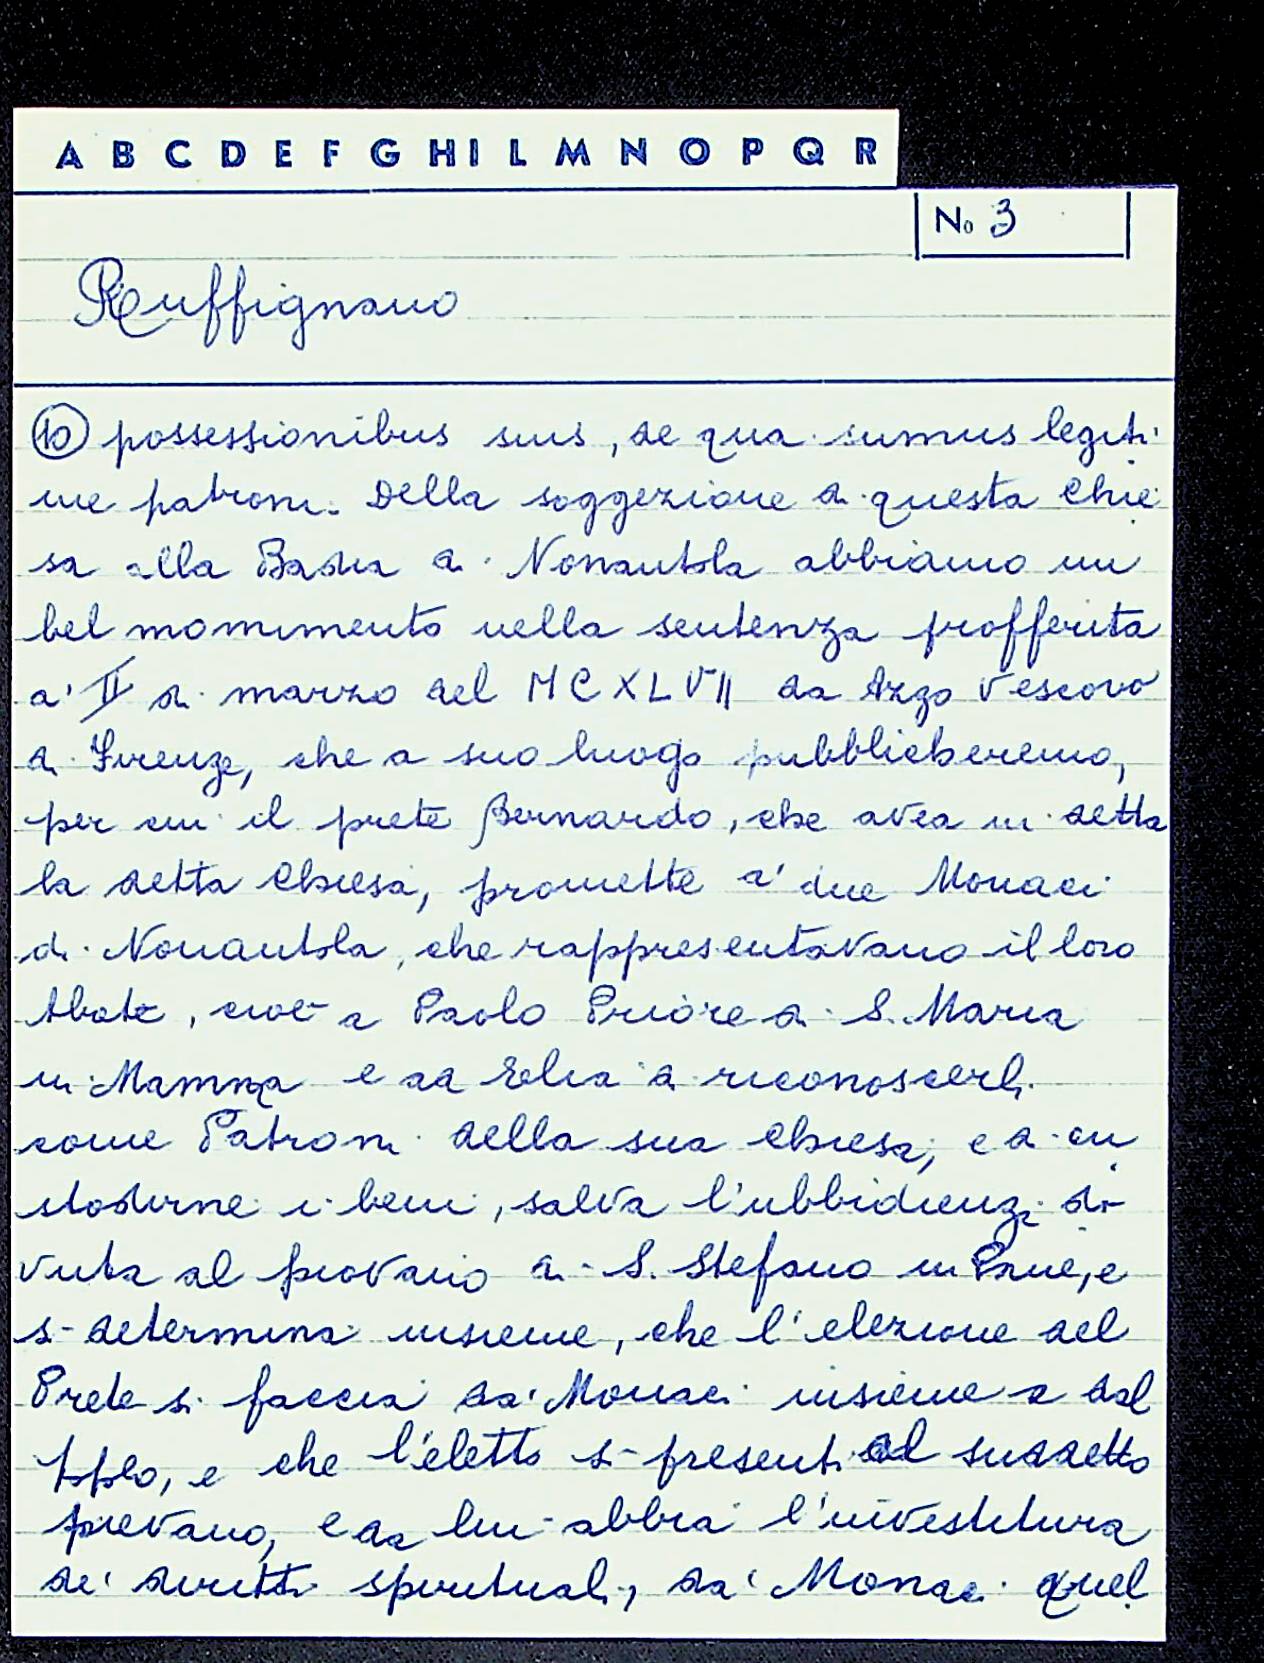 A B C D E F G H I L M N O P Q R
No 3
Ruffignano
10 possessionibus suis, de qua sumus legiti
me patroni. Della soggezione di questa Chie
sa alla Badia di Nonantola abbiamo un
bel monimento nella sentenza profferita
a' II di marzo del MCXLVII da Azzo Vescovo
di Firenze, che a suo luogo pubblicheremo,
per cui il prete Bernardo, che avea in detta
la detta Chiesa, promette a' due Monaci
di Nonantola, che rappresentavano il loro
Abate, cioè a Paolo Priore di S. Maria
in Mamma e ad Elia di riconoscerli
come Patroni della sua Chiesa, e di cu
stodirne i beni, salva l'ubbidienza do
vuta al piovano di S. Stefano in Pane, e
si determina insieme, che l'elezione del
Prete si faccia da' Monaci insieme e dal
pplo, e che l'eletto si presenti al suddetto
pievano, e da lui abbia l'investitura
de' diritti spirituali, da' Monaci quel